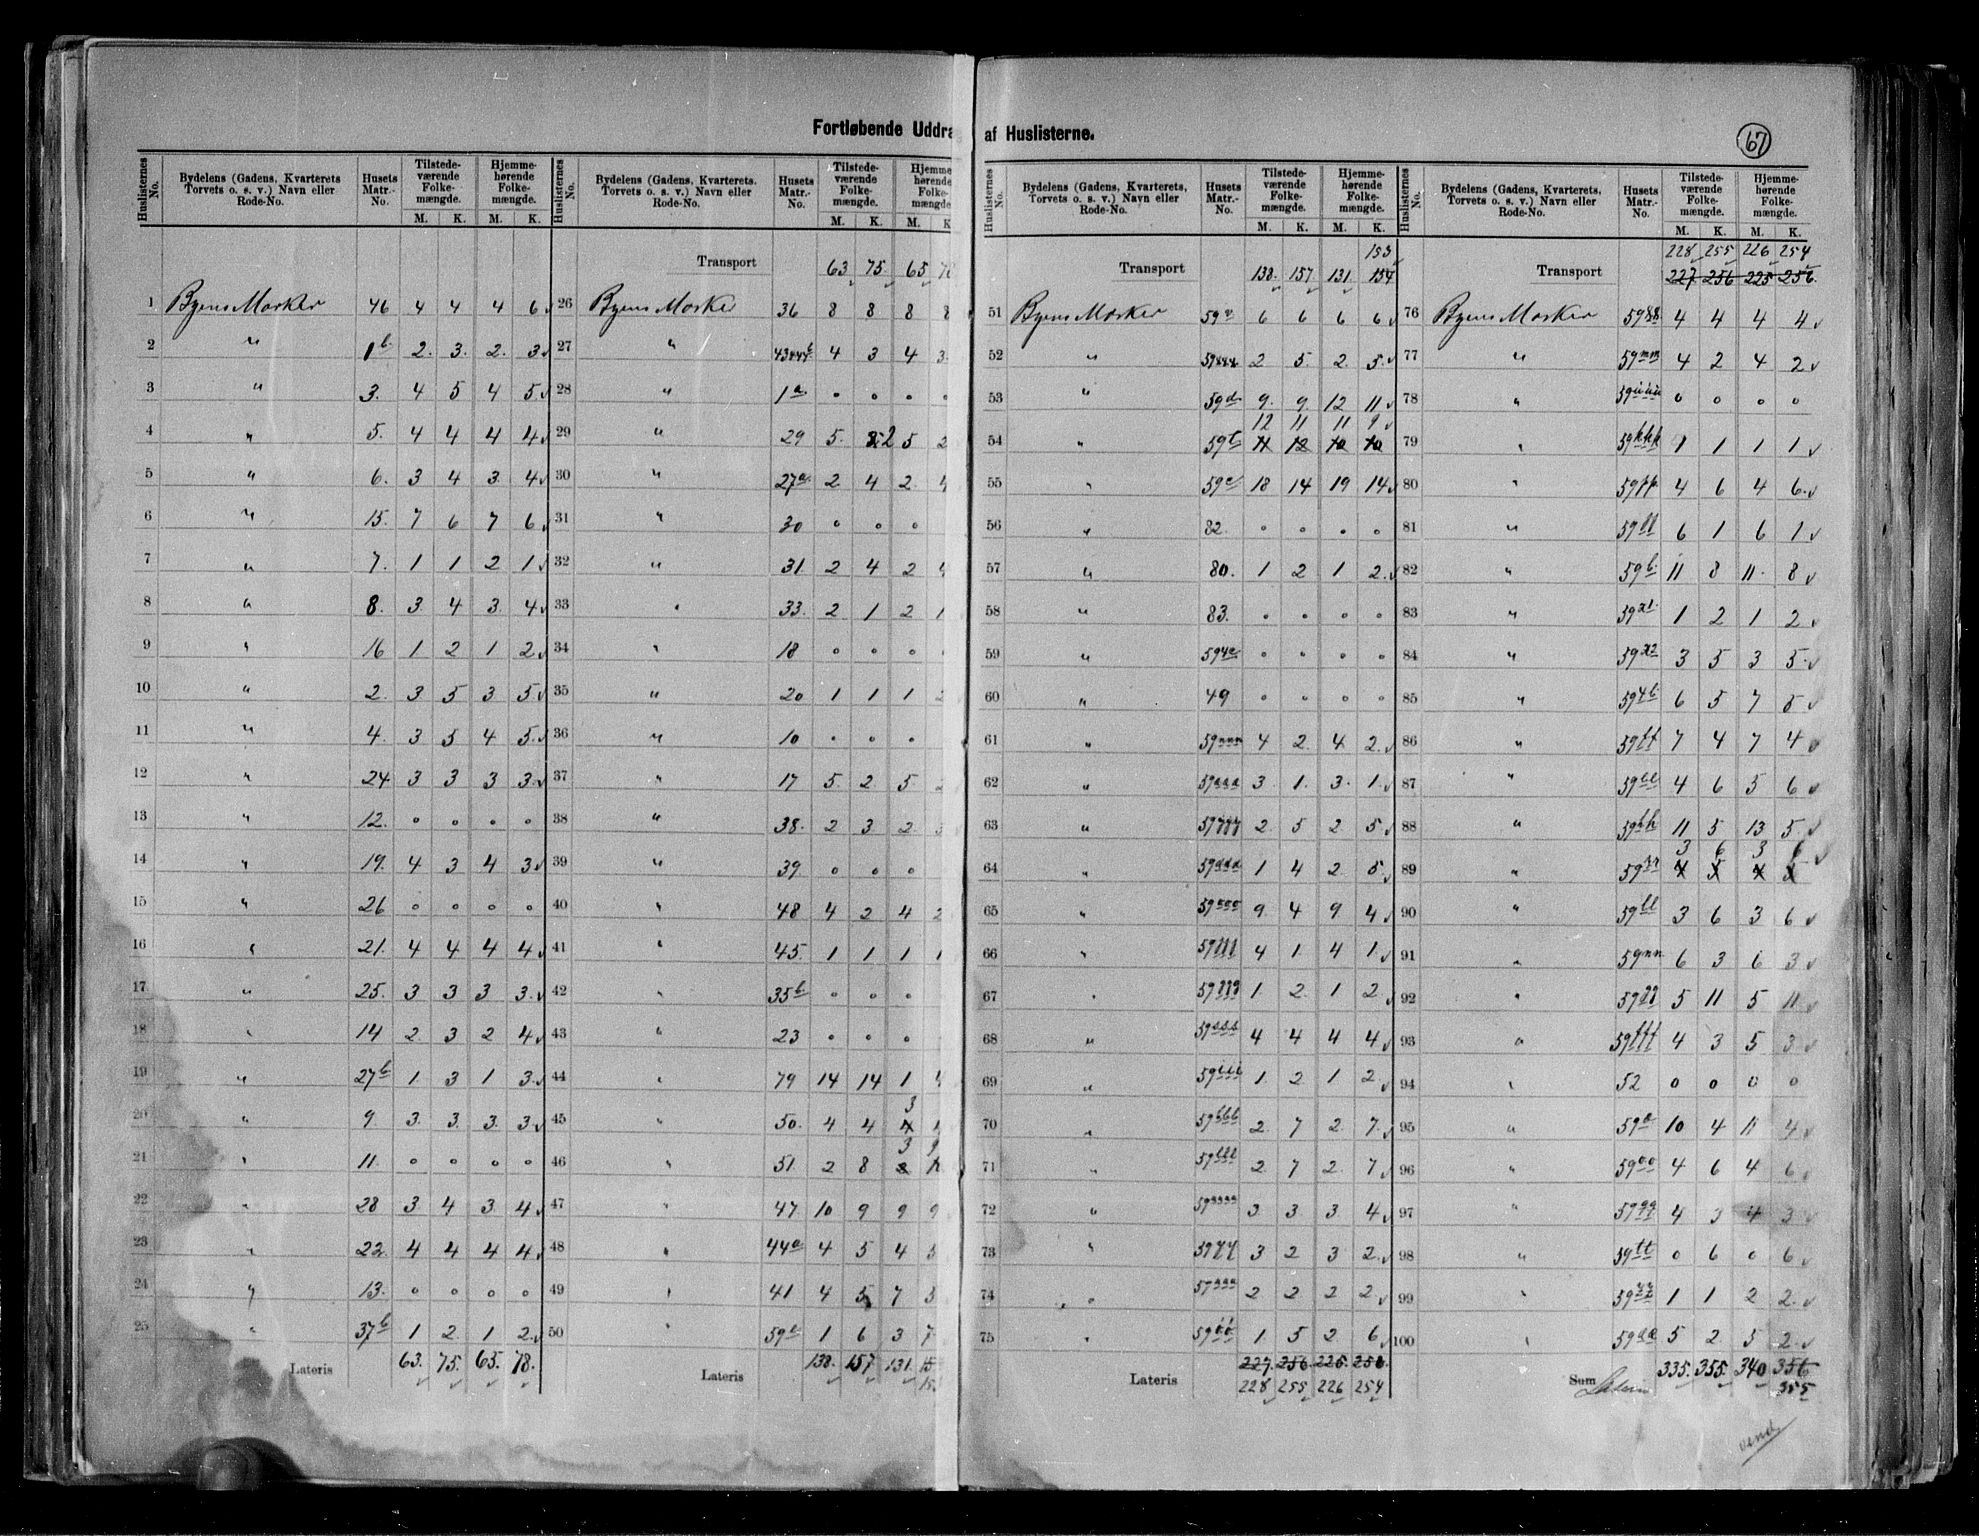 Fortløbende Uddra af Huslisterne.
67
Huslisternes No. | Bydelens (Gadens, Kvarterets Torvets o. s. v.) Navn eller Rode-No. | Husets Matr.-No. | Tilstede-værende Folke-mængde. M. K. | Hjemme-hørende Folke-mængde. M. K.
1 Byens Marker 46 4 4 4 6
2 " 1b 2. 3. 2. 3
3 " 3. 4 5 4 5
4 " 5. 4 4 4 4
5 " 6. 3 4 3. 4
6 " 15. 7 6 7 6
7 " 7. 1 1 2 1
8 " 8. 3. 4 3. 4
9 " 16 1 2 1 2
10 " 2. 3 5 3 5
11 " 4. 3 5 4 5.
12 " 24 3 3 3 3
13 " 12. 0 0 0 0
14 " 19. 4 3 4 3
15 " 26 0 0 0 0
16 " 21. 4 4 4 4
17 " 25. 3 3 3 3.
18 " 14 2. 3 2 4
19 " 27b 1. 3 1 3.
20 " 9. 3. 3. 3. 3
21 " 11. 0 0 0 0
22 " 28 3 4 3 4
23 " 22. 4 4 4 4
24 " 13. 0 0 0 0
25 " 37b 1 2 1 2
Lateris 63. 75. 65. 78.
Huslisternes No. | Bydelens (Gadens, Kvarterets, Torvets o. s. v.) Navn eller Rode-No. | Husets Matr.-No. | Tilstede-værende Folke-mængde. M. K. | Hjemme-hørende Folke-mængde M. K
Transport 63 75. 65
26 Byens Marker 36 8 8 8 8
27 " 4 3 4 3
28 " 1a 0 0 0 0
29 " 29 5. 2 5 2
30 " 27a 2 4 2. 4
31 " 30 0 0 0
32 " 31. 2 4 2 4
33 " 33. 2 1 2 1
34 " 18 0 0 0 0
35 " 20 1 1 1 2
36 " 10 0 0 0
37 " 17 5. 2 5. 2
38 " 38. 2 3 2. 3
39 " 39. 0 0 0
40 " 48 4 2 4 2
41 " 45. 1 1 1 1
42 " 35b 0 0 0
43 " 23 0 0 0
44 " 79 14 14 1 4
45 " 50. 4 4 3 4
46 " 51. 2 8 3 9
47 " 47. 10 9 9 9
48 " 44a 4 5 4 5
49 " 41 4 5 7 5
50 " 1 6 3 7
Lateris 138. 157 131.
Huslisternes No. | Bydelens (Gadens, Kvarterets, Torvets o. s. v.) Navn eller Rode-No. | Husets Matr.-No. | Tilstede-værende Folke-mængde. M. K. | Hjemme-hørende Folke-mængde. M. K.
153
Transport 138. 157 131. 154
51 Byens Marker 6 6 6 6
52 " 2 5. 2. 5.
53 " 59d 9. 9. 12 11
12 11 11 9
54 " 11 12 10 10
55 " 18 14 19 14
56 " 82. 0 0 0 0
57 " 80. 1 2 1 2.
58 " 83. 0 0 0 0
59 " 0 0 0 0
60 " 49 0 0 0 0
61 " 59nnn 4 2. 4 2.
62 " 3 1. 3. 1.
63 " 2. 5 2 5
64 " 1 4 2 5.
65 " 9. 4 9 4
66 " 4 1. 4 1.
67 " 1. 2. 1 2
68 " 4 4 4 4
69 " 1. 2 1 2
70 " 2. 7 2. 7.
71 " 2. 7 2. 7
72 " 3 3. 3. 4
73 " 3 2 3 2.
74 " 2 2 2 2.
75 " 1. 5 2 6
Lateris 227. 256 225. 256.
228 255 226 254
Huslisternes No. | Bydelens (Gadens, Kvarterets, Torvets o. s. v.) Navn eller Rode-No. | Husets Matr.-No. | Tilstede-værende Folke-mængde. M. K. | Hjemme-hørende Folke-mængde. M. K.
228 255 226 254
Transport 227 256 225 256.
76 Byens Marker 4 4 4 4
77 " 59mm 4 2 4 2
78 " 0 0 0 0
79 " 59kkk 1 1 1 1
80 " 59pp 4 6 4 6.
81 " 6 1 6 1
82 " 59b. 11 8 11. 8
83 " 59x1. 1 2 1 2
84 " 59x2 3 5 3 5.
85 " 6 5 7 5
86 " 7 4 7 4
87 " 4 6 5 6
88 " 59hh 11 5 13 5.
3 6 3 6
89 " 4 5 4 5
90 " 59ll 3 6 3 6
91 " 59nn 6 3 6 3
92 " 5 11 5 11
93 " 4 3 5 3
94 " 52 0 0 0 0
95 " 10 4 11 4
96 " 59oo 4 6 4 6
97 " 59qq 4 3 4 3
98 " 59tt 0 6 0 6
99 " 1 1 2 2
100 " 5 2. 5 2.
Sum Lateris 335. 355. 340 356
355
vend